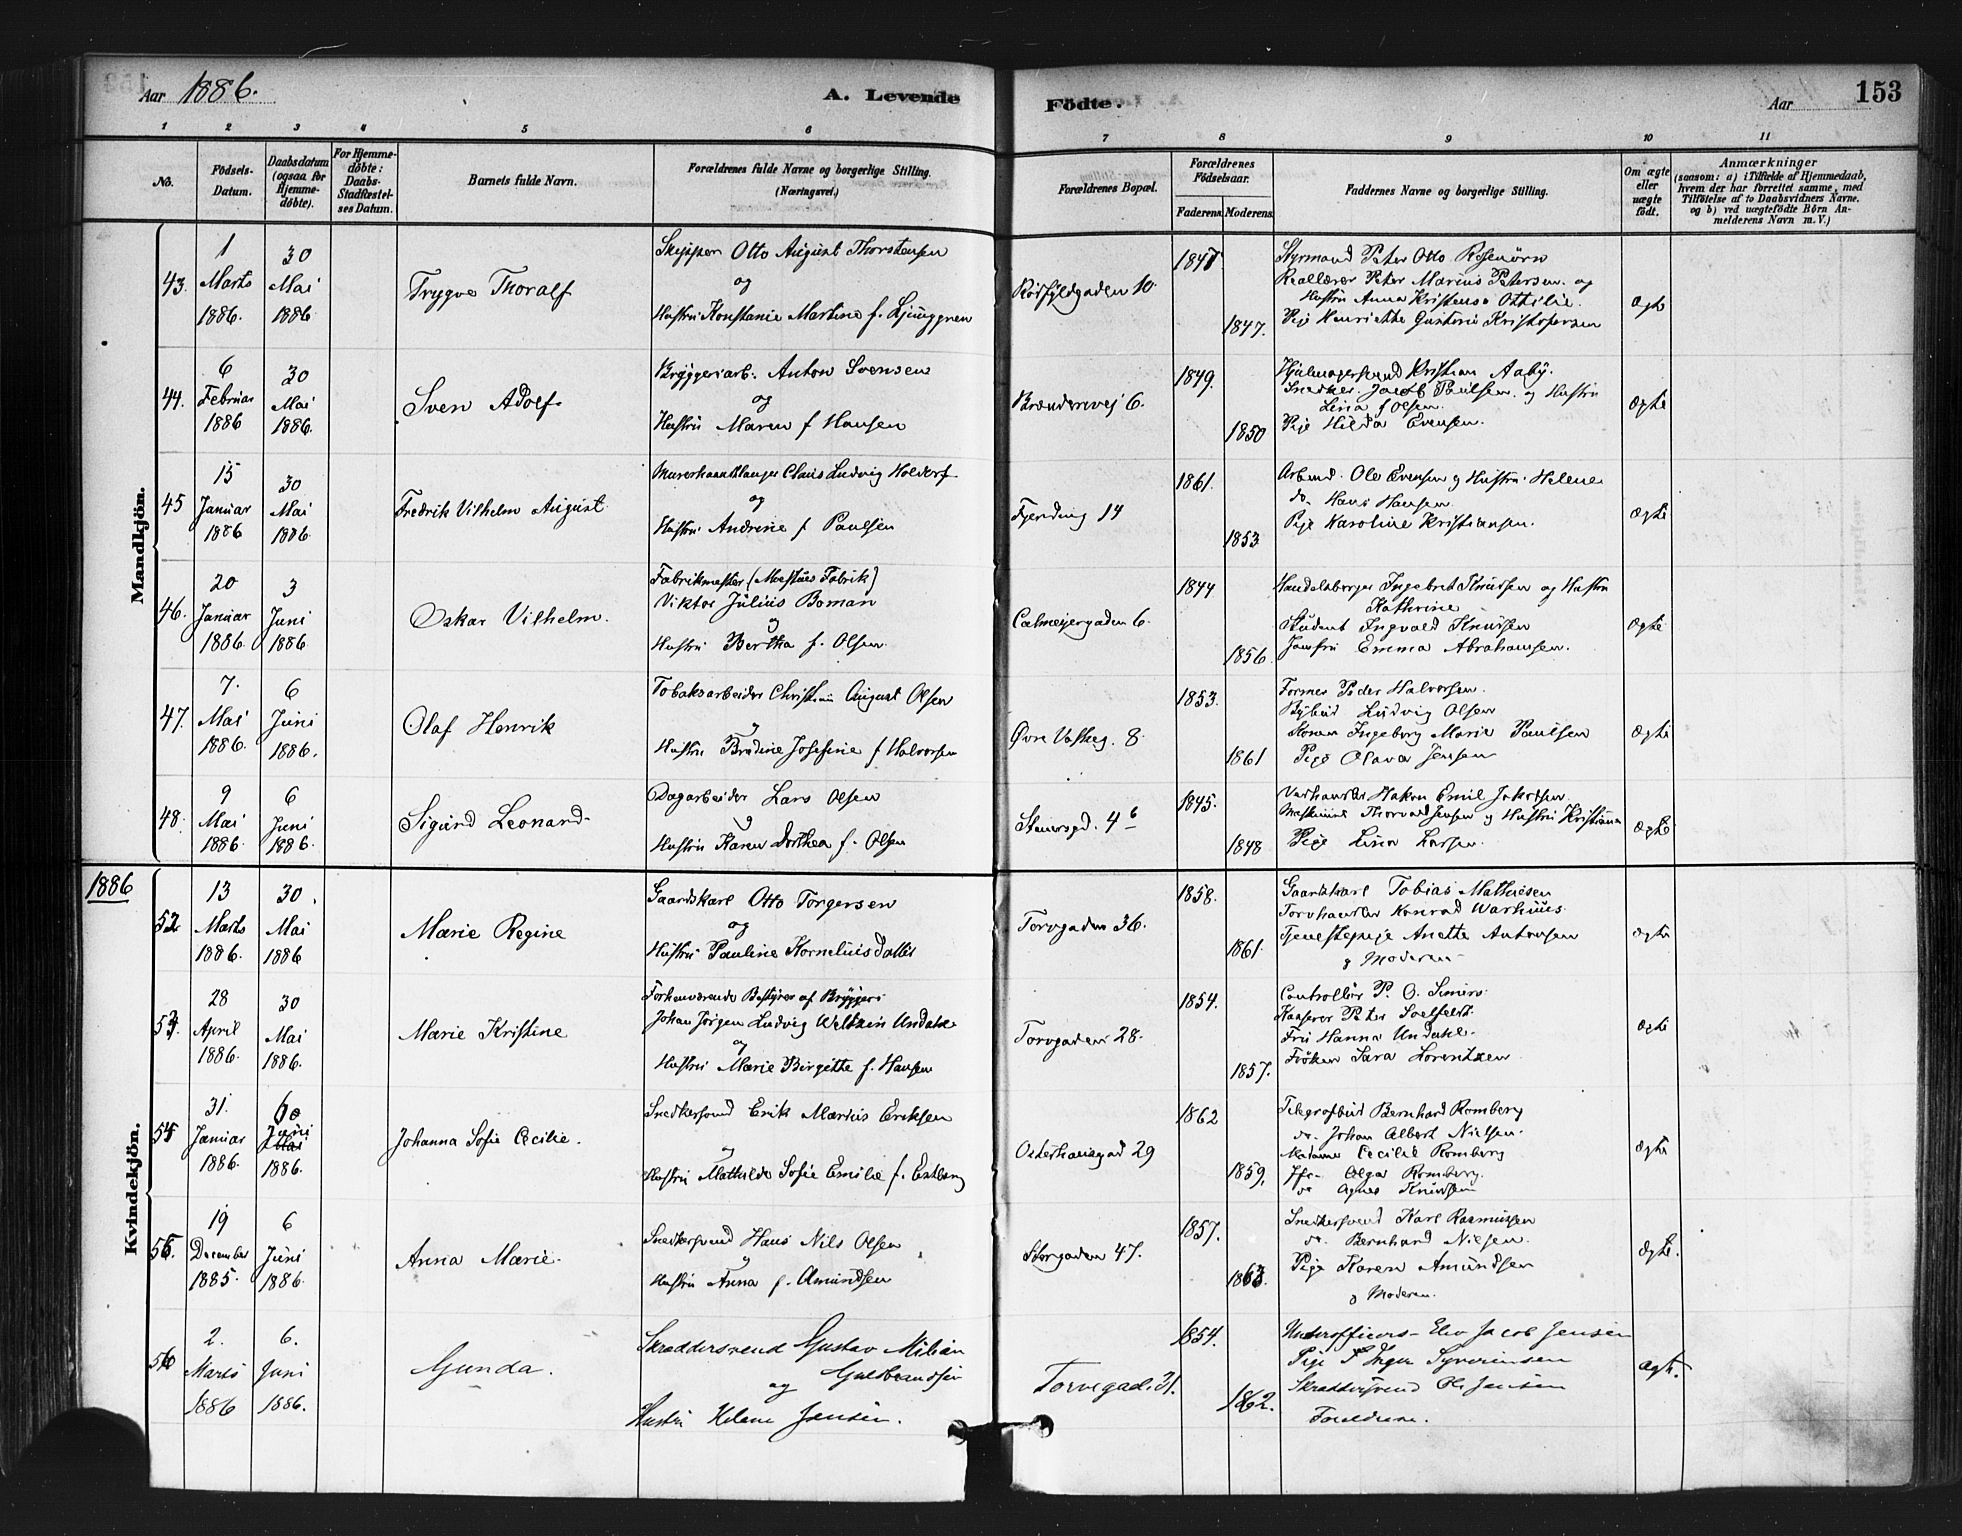 Aar 1886.
A. Levende
Födte.
Aar
153
1 2 3 4 5 6 7 8 9 10 11
No.
Födsels-Datum.
Daabsdatum (ogsaa for Hjemme-döbte).
For Hjemme-döbte: Daabs-Stadfæstel-ses Datum.
Barnets fulde Navn.
Forældrenes fulde Navne og borgerlige Stilling.
(Næringsvei.)
Forældrenes Bopæl.
Forældrenes Födselsaar.
Faderens. Moderens.
Faddernes Navne og borgerlige Stilling.
Om ægte eller uægte födt.
Anmærkninger
(saasom: a) i Tilfælde af Hjemmedaab,
hvem der har forrettet samme, med
Tilföielse af to Daabsvidners Navne.
og b) ved uægtefödte Börn An-
melderens Navn m. V.)
Mandkjön.
43. 1 Marts 1886. 30 Mai 1886
Trygve Thoralf
Skipper Otto August Thorstensen
og
Hustru Konstanse Martine f. Ljunggren
10.
1847.
Styrmand Peter Otto Rosenörn
Reallærer Peter Marius Petersen og
Hustru Anna Kristense Ottilie.
Pige Henriette Gustava Kristofersen
Ægte
44. 6 Februar 1886 30 Mai 1886.
Sven Adolf
Bryggeriarb. Anton Svensen
og
Hustru Maren f Hansen
6.
1849.
1850
Hjulmagersvend Kristian Aaby.
Snedker Jacob Paulsen og Hustru
Lina f Olsen.
Pige Hilda Evensen.
Ægte
45 15 Januar 1886 30 Mai 1886
Fredrik Vilhelm August
Murerhaandlanger Claus Ludvig Holdorf
og
Hustru Andrine f Paulsen
Fjerding 14
1861.
1853
Arbmd. Ole Evensen og Hustru Helene
do. Hans Hansen
Pige Karoline Kristiansen.
Ægte
46. 20 Januar 1886 3 Juni 1886
Oskar Vilhelm.
Fabrikmester (Mestues Fabrik)
Viktor Julius Boman
og
Hustru Bertha f. Olsen
Calmeyergaden 6.
1844
1856.
Handelsborger Ingebret Knudsen og Hustru
Kathrine
Student Ingvald Knudsen
Jomfru Emma Abrahamsen.
Ægte
47. 7. Mai 1886. 6 Juni 1886.
Olaf Henrik
Tobaksarbeider Christian August Olsen
og
Hustru Bredine Josefine f Halvorsen
Øvre Voldeg. 8.
1853.
1861
Former Peder Halvorsen.
Bybud Ludvig Olsen
Konen Ingeborg Marie Paulsen
Pige Olava Jensen
Ægte
48. 9 Mai 1886 6 Juni 1886
Sigurd Leonard
Dagarbeider Lars Olsen
og
Hustru Karen Dorthea f. Olsen
Stenersgd. 4 b
1845.
1848
Vedhandler Hakon Emil Jakobsen
Maskinist Thorvald Jensen og Hustru Kristiana
Pige Lina Larsen
Ægte
1886
Kvindekjön.
52 13 Marts 1886. 30 Mai 1886
Marie Regine
Gaardskarl Otto Torgersen
og
Hustru Pauline Korneliusdatter
Torvgaden 36.
1858.
1861.
Gaardskarl Tobias Mathiesen
Torvhandler Konrad Warhuus
Tjenestepige Anette Antonsen
og Moderen
Ægte
53 28 April 1886. 30 Mai 1886.
Marie Kristine
Forhenværende Bestyrer af Bryggeri
Johan Jörgen Ludvig Weltzin Undahl
og
Hustru Marie Birgitte f. Hansen
Torvgaden 28.
1854.
1857.
Controllör P. O.
Kasserer Peter
Fru Hanna Undahl.
Fröken Sara Lorentzen
Ægte
54 31. Januar 1886. 6 Juni 1886.
Johanna Sofie Cecilie.
Snedkersvend Erik Marius Eriksen
og
Hustru Mathilde Sofie Emilie f. Estberg
Osterhausgad 29
1862
1859.
Telegrafbud Bernhard Romberg
do. Johan Albert Nielsen.
Madame Cecilie Romberg
Jfr. Olga Romberg.
do Agnes Knudsen
Ægte
55. 19 December 1885. 6 Juni 1886.
Anna Marie.
Snedkersvend Hans Nils Olsen
og
Hustru Anna f. Amundsen
Storgaden 47.
1857.
1863.
Snedkersvend Karl Rasmussen
do. Bernhard Nielsen.
Pige Karen Amundsen
og Moderen.
Ægte.
56 2. Marts 1886 6. Juni 1886.
Gunda.
Skræddersvend Gustav Milian
Guldbrandsen
og
Hustru Helene Jensen.
Torvegad. 31.
1854.
1862.
Underofficers-Elev Jacob Jensen
Pige Inger Syverinsen
Skræddersvend Ole Jensen
Forældrene.
Ægte.